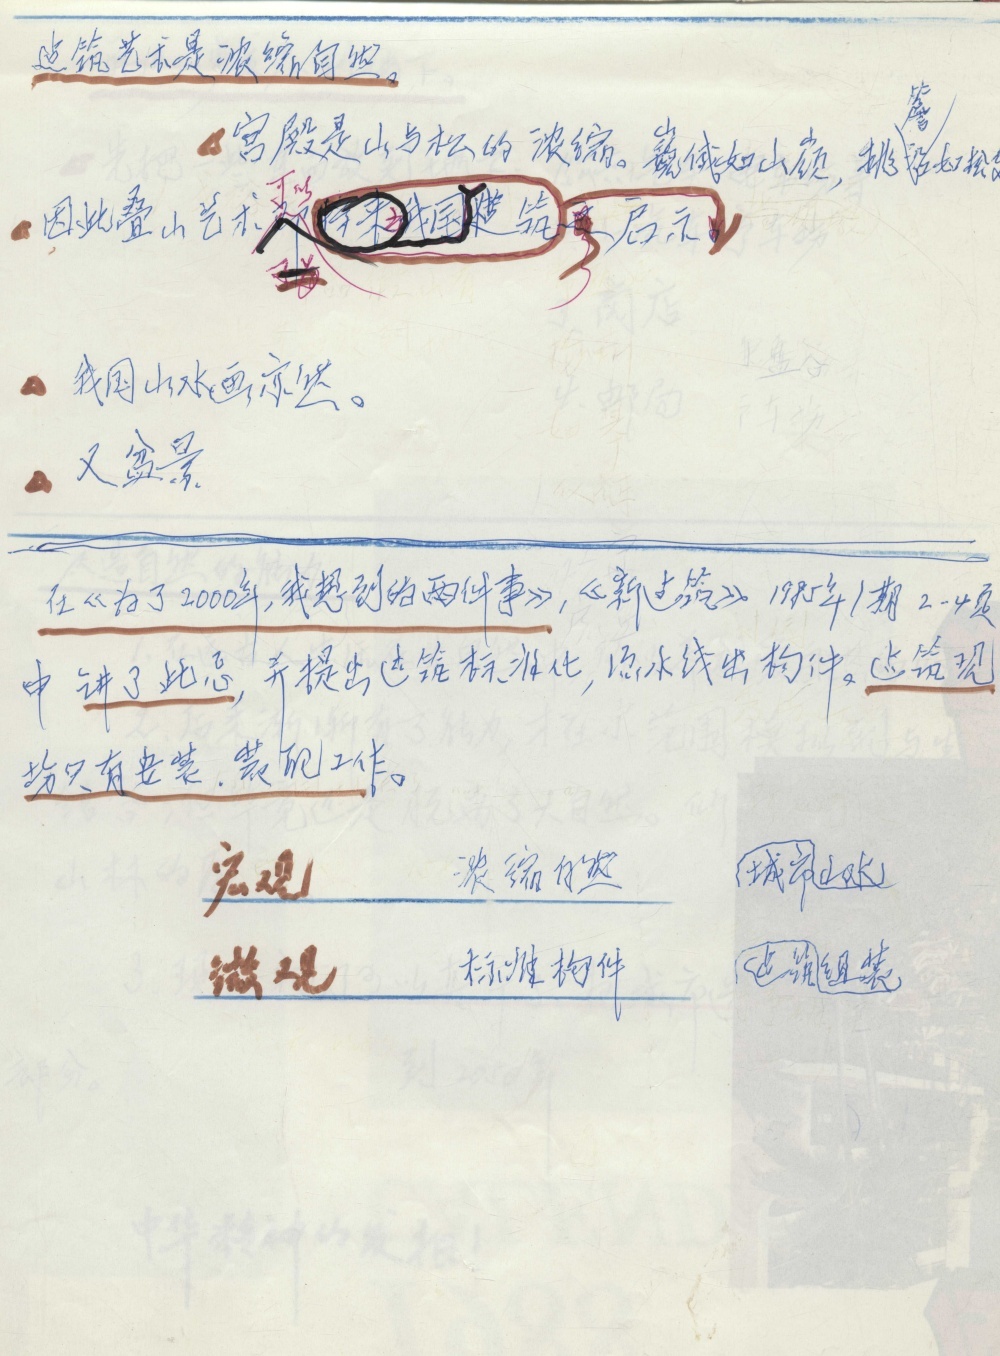 建筑艺术是浓缩自然。
宫殿是山与松的浓缩。巍峨如山巅，挑檐如松
因此叠山艺术可以 未来之我国建筑 启示
我国山水画亦然。
又盆景
在《为了2000年，我想到的两件事》，《新建筑》1985年1期2-4页
中讲了此意，并提出建筑标准化，流水线出构件。建筑现
场只有安装、装配工作。
宏观 浓缩自然 (城市山水)
微观 标准构件 (建筑组装)